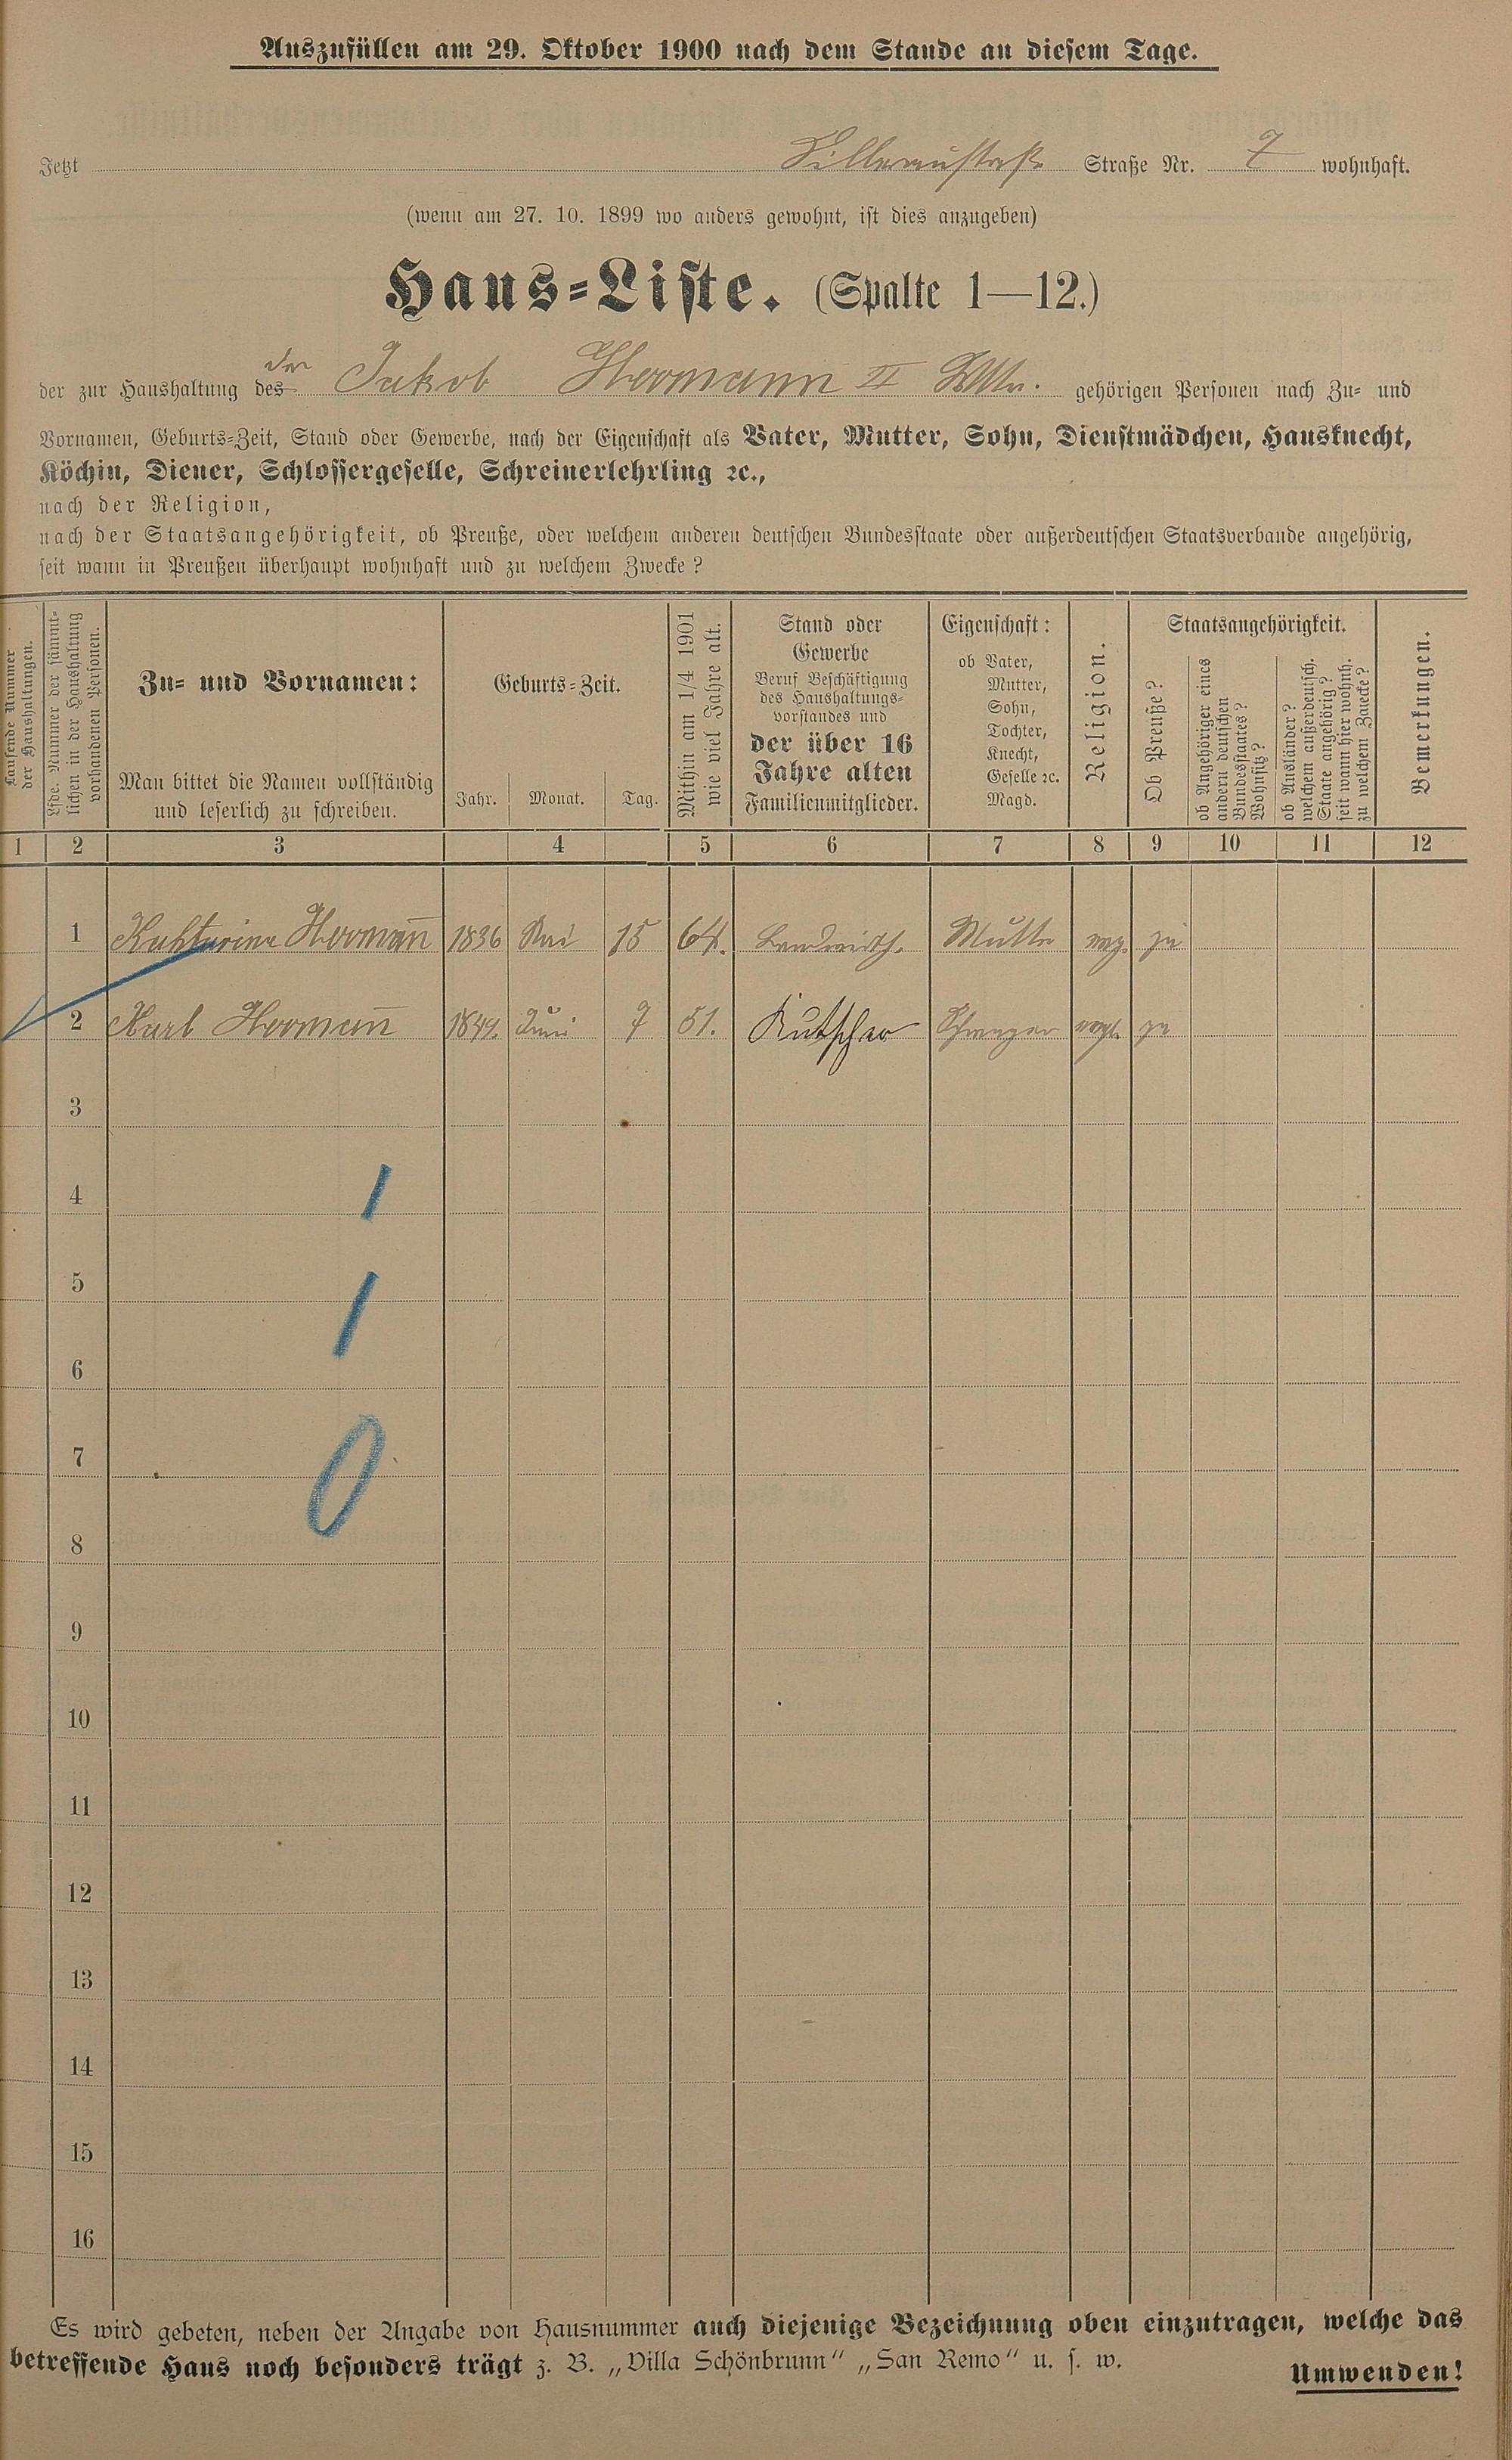 Auszufüllen am 29. Oktober 1900 nach dem Stande an diesem Tage.
Jetzt Straße Nr. 7 wohnhaft.
(wenn am 27. 10. 1899 wo anders gewohnt, ist dies anzugeben)
Haus-Liste. (Spalte 1—12.)
der
der zur Haushaltung des Jakob Hermann II Wtw. gehörigen Personen nach Zu- und
Vornamen, Geburts-Zeit, Stand oder Gewerbe, nach der Eigenschaft als Vater, Mutter, Sohn, Dienstmädchen, Hausknecht,
Köchin, Diener, Schlossergeselle, Schreinerlehrling ꝛc.,
nach der Religion,
nach der Staatsangehörigkeit, ob Preuße, oder welchem anderen deutschen Bundesstaate oder außerdeutschen Staatsverbande angehörig,
seit wann in Preußen überhaupt wohnhaft und zu welchem Zwecke?
Laufende Nummer
der Haushaltungen.
Lfde. Nummer der sämmt-
lichen in der Haushaltung
vorhandenen Personen.
Zu- und Vornamen:
Man bittet die Namen vollständig
und leserlich zu schreiben.
Geburts-Zeit.
Jahr. Monat. Tag.
Mithin am 1/4 1901
wie viel Jahre alt.
Stand oder
Gewerbe
Beruf Beschäftigung
des Haushaltungs-
vorstandes und
der über 16
Jahre alten
Familienmitglieder.
Eigenschaft:
ob Vater,
Mutter,
Sohn,
Tochter,
Knecht,
Geselle ꝛc.
Magd.
Religion.
Staatsangehörigkeit.
Ob Preuße?
ob Angehöriger eines
andern deutschen
Bundesstaates?
Wohnsitz?
ob Ausländer?
welchem außerdeutsch.
Staate angehörig?
seit wann hier wohnh.
zu welchem Zwecke?
Bemerkungen.
1 2 3 4 5 6 7 8 9 10 11 12
1 Kahtarina Hermann 1836 Mai 15 64. Landwirth. Mutter evg. ja
2 Karl Hermann 1849. Juni 7 51. Kutscher Schwager evgl. ja
3
4
5
6
7
8
9
10
11
12
13
14
15
16
Es wird gebeten, neben der Angabe von Hausnummer auch diejenige Bezeichnung oben einzutragen, welche das
betreffende Haus noch besonders trägt z. B. „Villa Schönbrunn“ „San Remo“ u. s. w.
Umwenden!